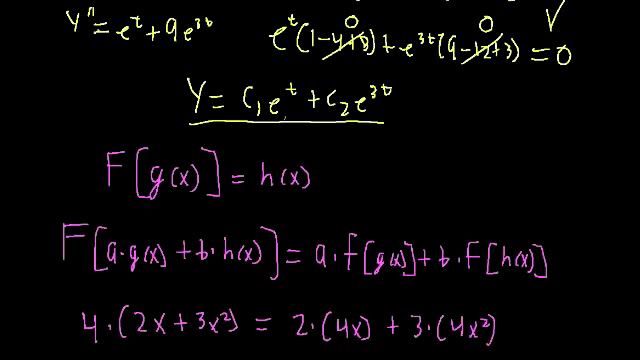 y'' = e^t + 9e^{3t}   e^t(1-4+3) + e^{3t}(9-12+3) = 0 ✓
0   0
y = c₁e^t + c₂e^{3t}
F[g(x)] = h(x)
F[a·g(x) + b·h(x)] = a·f[g(x)] + b·F[h(x)]
4·(2x + 3x²) = 2·(4x) + 3·(4x²)